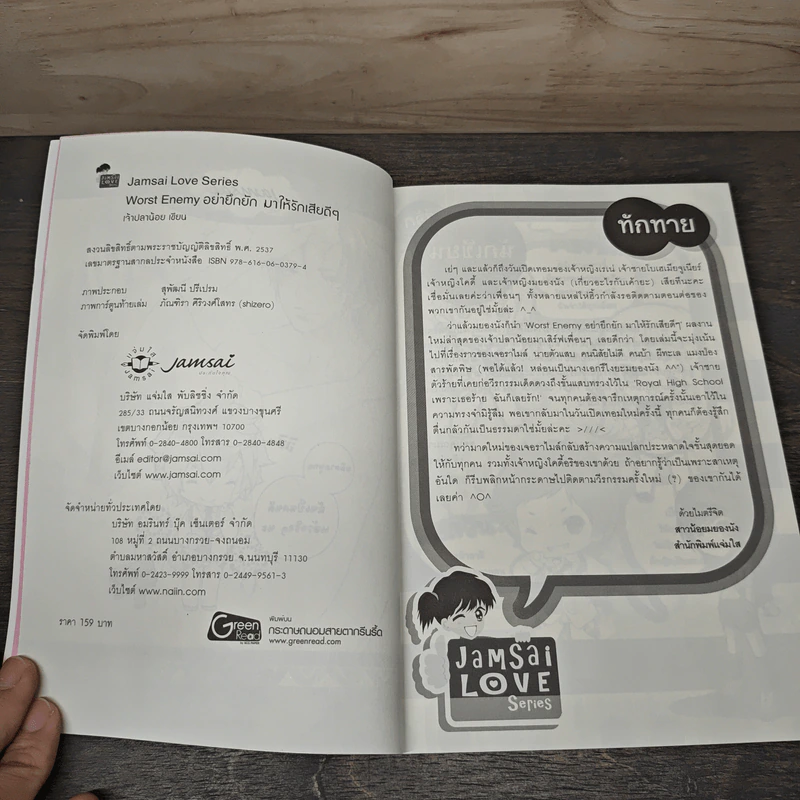 JAMSAI
LOVE
Jamsai Love Series
Worst Enemy อย่ายึกยัก มาให้รักเสียดีๆ
เจ้าปลาน้อย เขียน
สงวนลิขสิทธิ์ตามพระราชบัญญัติลิขสิทธิ์ พ.ศ. 2537
เลขมาตรฐานสากลประจำหนังสือ ISBN 978-616-06-0379-4
ภาพประกอบ สุพัฒนี ปรีเปรม
ภาพการ์ตูนท้ายเล่ม ภัณฑิรา ศิริวงศ์โสทร (shizero)
จัดพิมพ์โดย
แจ่มใส
JAMSAI
Jamsai
บริษัท แจ่มใส พับลิชชิ่ง จำกัด
285/33 ถนนจรัญสนิทวงศ์ แขวงบางขุนศรี
เขตบางกอกน้อย กรุงเทพฯ 10700
โทรศัพท์ 0-2840-4800 โทรสาร 0-2840-4848
อีเมล์ editor@jamsai.com
เว็บไซต์ www.jamsai.com
จัดจำหน่ายทั่วประเทศโดย
บริษัท อมรินทร์ บุ๊ค เซ็นเตอร์ จำกัด
108 หมู่ที่ 2 ถนนบางกรวย-จงถนอม
ตำบลมหาสวัสดิ์ อำเภอบางกรวย จ.นนทบุรี 11130
โทรศัพท์ 0-2423-9999 โทรสาร 0-2449-9561-3
เว็บไซต์ www.naiin.com
ราคา 159 บาท
Green
Read
พิมพ์บน
กระดาษถนอมสายตากรีนรี้ด
www.greenread.com
ทักทาย
เย่ๆ และแล้วก็ถึงวันเปิดเทอมของเจ้าหญิงเรเน่ เจ้าชายโบเฮเมียจูเนียร์
เจ้าหญิงโคดี้ และเจ้าหญิงมยองนัง (เกี่ยวอะไรกับเค้ายะ) เสียทีนะคะ
เชื่อมั่นเลยค่ะว่าเพื่อนๆ ทั้งหลายแหล่ให้อิ้วกำลังรอติดตามตอนต่อของ
พวกเขากันอยู่ใช่มั้ยล่ะ ^_^
ว่าแล้วมยองนังก็นำ 'Worst Enemy อย่ายึกยัก มาให้รักเสียดีๆ' ผลงาน
ใหม่ล่าสุดของเจ้าปลาน้อยมาเสิร์ฟเพื่อนๆ เลยดีกว่า โดยเล่มนี้จะมุ่งเน้น
ไปที่เรื่องราวของเจอราไมล์ นายตัวแสบ คนนิสัยไม่ดี คนบ้า ผีทะเล แมงป่อง
สารพัดพิษ (พอได้แล้ว! หล่อนเป็นนางเอกรึไงยะมยองนัง ^^') เจ้าชาย
ตัวร้ายที่เคยก่อวีรกรรมเด็ดดวงถึงขั้นแสบทรวงไว้ใน 'Royal High School
เพราะเธอร้าย ฉันก็เลยรัก!' จนทุกคนต้องจารึกเหตุการณ์ครั้งนั้นเอาไว้ใน
ความทรงจำมิรู้ลืม พอเขากลับมาในวันเปิดเทอมใหม่ครั้งนี้ ทุกคนก็ต้องรู้สึก
ตื่นกลัวกันเป็นธรรมดาใช่มั้ยล่ะคะ >///<
ทว่ามาดใหม่ของเจอราไมล์กลับสร้างความแปลกประหลาดใจขั้นสุดยอด
ให้กับทุกคน รวมทั้งเจ้าหญิงโคดี้อริของเขาด้วย ถ้าอยากรู้ว่าเป็นเพราะสาเหตุ
อันใด ก็รีบพลิกหน้ากระดาษไปติดตามวีรกรรมครั้งใหม่ (?) ของเขากันได้
เลยค่า ^O^
ด้วยไมตรีจิต
สาวน้อยมยองนัง
สำนักพิมพ์แจ่มใส
JAMSAI
LOVE
Series